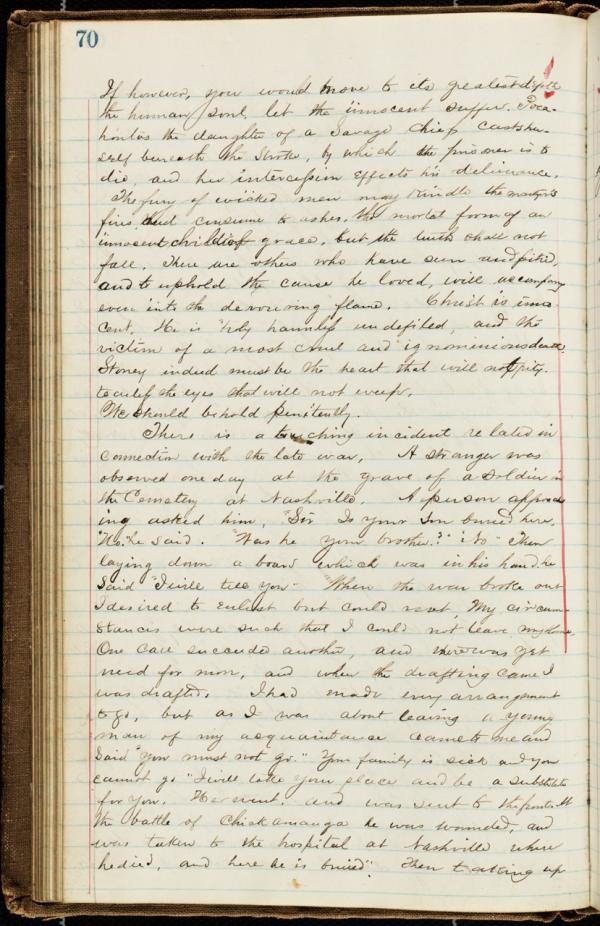 70
If however, you would move to its greatest depth
the human soul, let the innocent suffer. Poca-
hontas the daughter of a Savage Chief casts her-
self beneath the stroke, by which the prisoner is to
die and her intercession effects his deliverance.
The fury of wicked men may kindle the martyr's
fires, and consume to ashes, the mortal form of an
innocent child of grace, but the truth shall not
fall. There are others who have seen and pitied,
and to uphold the cause he loved, will accompany
even into the devouring flame. Christ is inno-
cent. He is holy harmless undefiled, and the
victim of a most cruel and ignominious death.
Stoney indeed must be the heart that will not pity.
the eyes that will not weep.
We should behold penitently.
There is a touching incident related in
connection with the late war. A stranger was
observed one day at the grave of a soldier in
the Cemetery at Nashville. A person approach-
ing asked him, "Sir Is your Son buried here.
"No." he said. "Was he your brother?" "No" Then
laying down a board which was in his hand, he
said "I will tell you" "When the war broke out
I desired to enlist but could not, My circum-
stances were such that I could not leave my home.
One call succeeded another, and there was yet
need for men, and when the drafting came I
was drafted. I had made every arrangement
to go, but as I was about leaving a young
man of my acquaintance came to me and
said "You must not go." Your family is sick and you
cannot go "I will take your place and be a substitute
for you. He went. and was sent to the front. At
the battle of Chickamauga he was wounded, and
was taken to the hospital at Nashville where
he died, and here he is buried". Then taking up